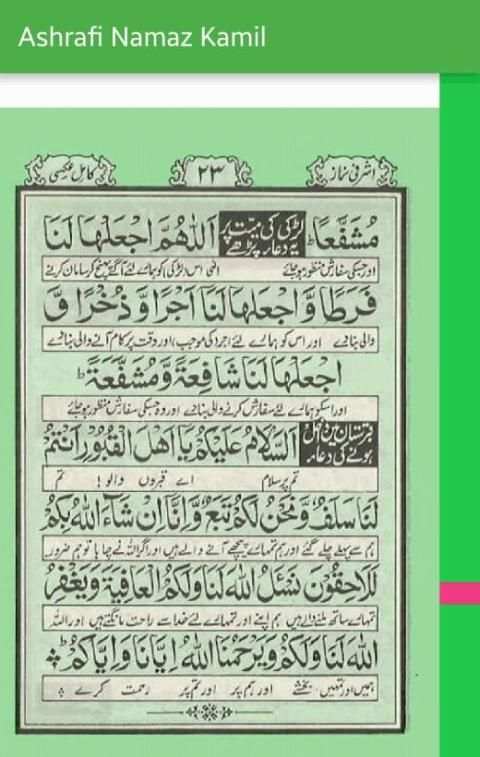 Ashrafi Namaz Kamil
اشرفی نماز
۲۳
کامل عکسی
مُشَفَّعًا ط لڑکی کی میت پر یہ دعاء پڑھے اَللّٰهُمَّ اجْعَلْهَا لَنَا
اور جسکی سفارش منظور ہو جائے الٰہی اس (لڑکی) کو ہمارے لئے آگے پہنچ کر سامان کرنے
فَرَطًا وَّاجْعَلْهَا لَنَا اَجْرًا وَّ ذُخْرًا وَّ
والی بنا دے اور اس کو ہمارے لئے اجر (کی موجب) اور وقت پر کام آنے والی بنا دے
اجْعَلْهَا لَنَا شَافِعَةً وَّ مُشَفَّعَةً ط
اور اسکو ہمارے لئے سفارش کرنے والی بنا دے اور وہ جسکی سفارش منظور ہو جائے
قبرستان میں داخل ہونے کی دعاء اَلسَّلَامُ عَلَيْكُمْ يَا اَهْلَ الْقُبُوْرِ اَنْتُمْ
تم پر سلام اے قبروں والو! تم
لَنَا سَلَفٌ وَّنَحْنُ لَكُمْ تَبَعٌ وَّاِنَّا اِنْ شَآءَ اللّٰهُ بِكُمْ
ہم سے پہلے چلے گئے اور ہم تمہارے پیچھے آنے والے ہیں اور اگر اللہ نے چاہا تو ہم ضرور
لَلَاحِقُوْنَ نَسْئَلُ اللّٰهَ لَنَا وَلَكُمُ الْعَافِيَةَ وَيَغْفِرُ
تمہارے ساتھ ملنے والے ہیں ہم اپنے اور تمہارے لئے خدا سے راحت مانگتے ہیں اور اللہ
اللّٰهُ لَنَا وَلَكُمْ وَيَرْحَمُنَا اللّٰهُ اِيَّانَا وَاِيَّاكُمْ
ہمیں اور تمہیں بخشے اور ہم پر اور تم پر رحمت کرے